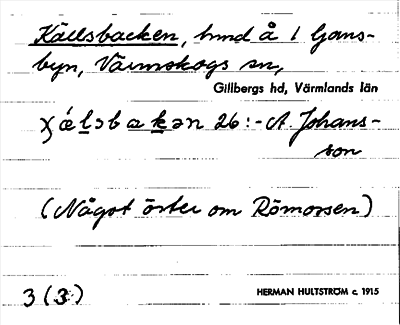 Källsbacken, hmd å 1 Gams-
byn, Värmskogs sn,
Gillbergs hd, Värmlands län
26:- A. Johans-
son
(Något öster om Römossen)
3 (3)
HERMAN HULTSTRÖM c. 1915